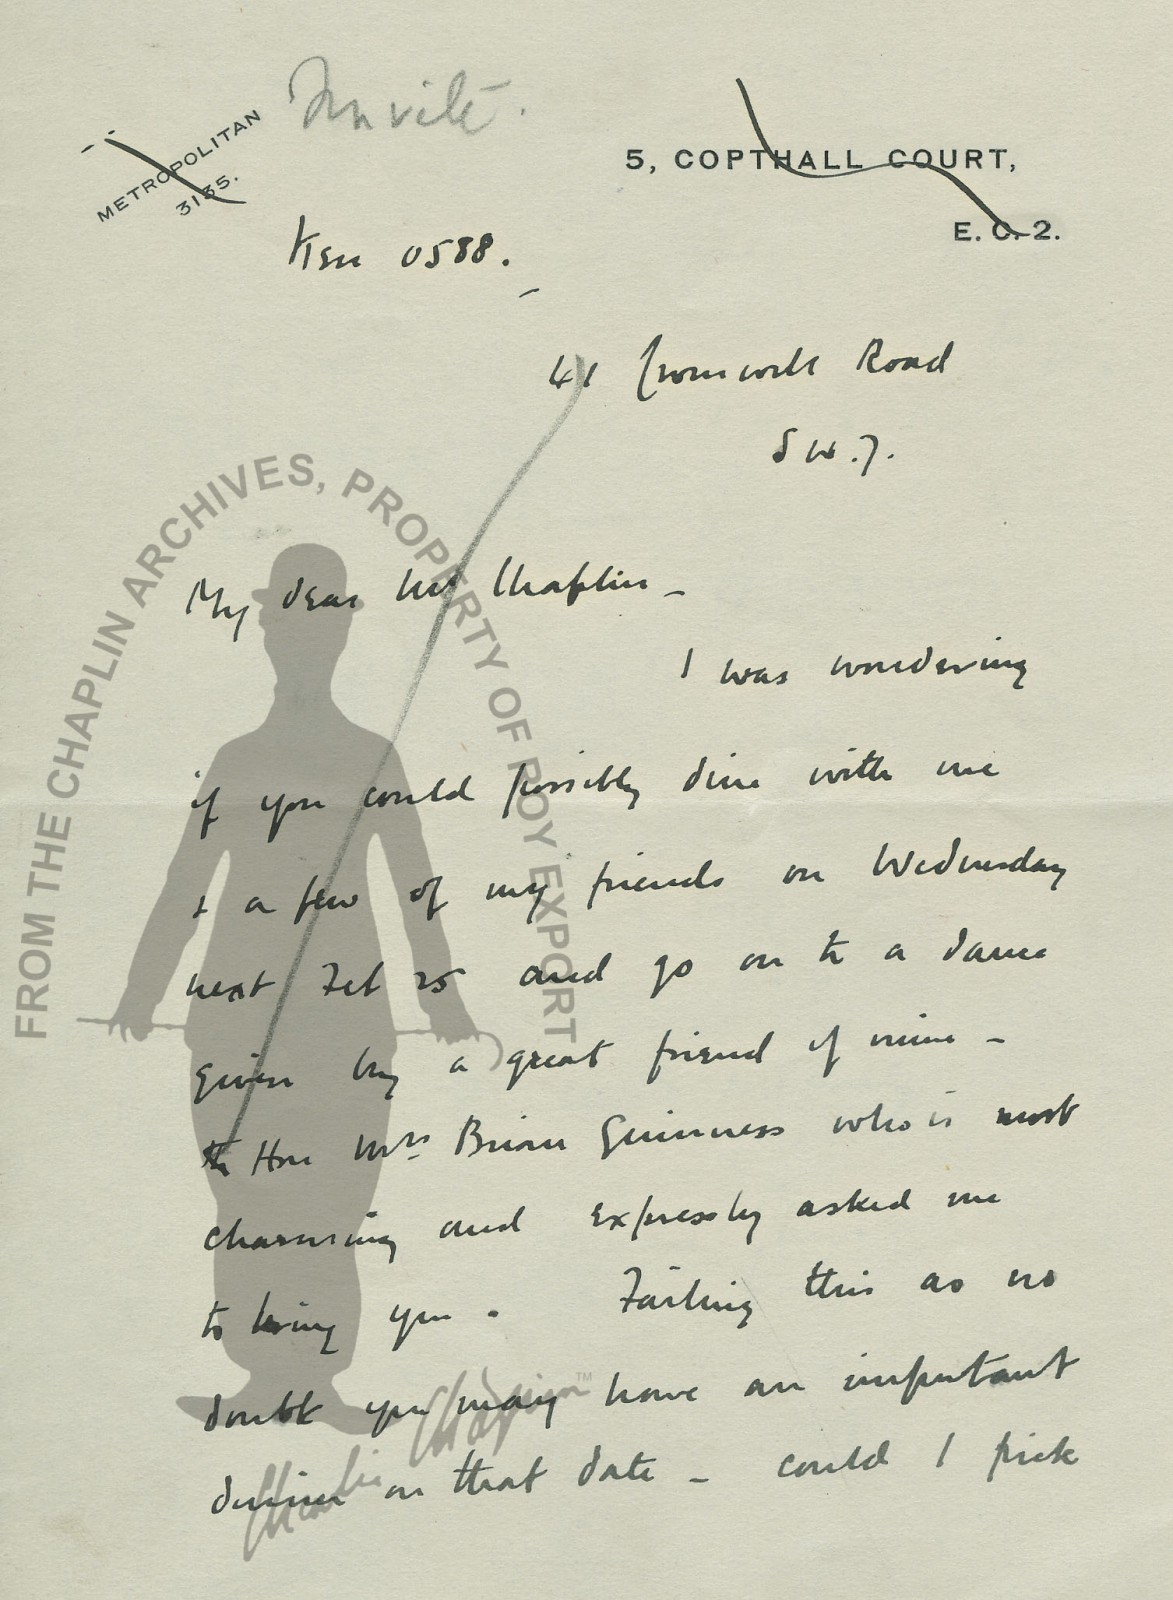 Invite.
METROPOLITAN
3135.
5, COPTHALL COURT,
E. C. 2.
Ken 0588.
41 Cromwell Road
SW.7.
My dear Mr Chaplin –
I was wondering
if you could possibly dine with me
& a few of my friends on Wednesday
next Feb 25 and go on to a dance
given by a great friend of mine –
the Hon Mrs Brian Guinness who is most
charming and expressly asked me
to bring you. Failing this as no
doubt you may have an important
dinner on that date – could I pick
FROM THE CHAPLIN ARCHIVES, PROPERTY OF ROY EXPORT
Charlie Chaplin™